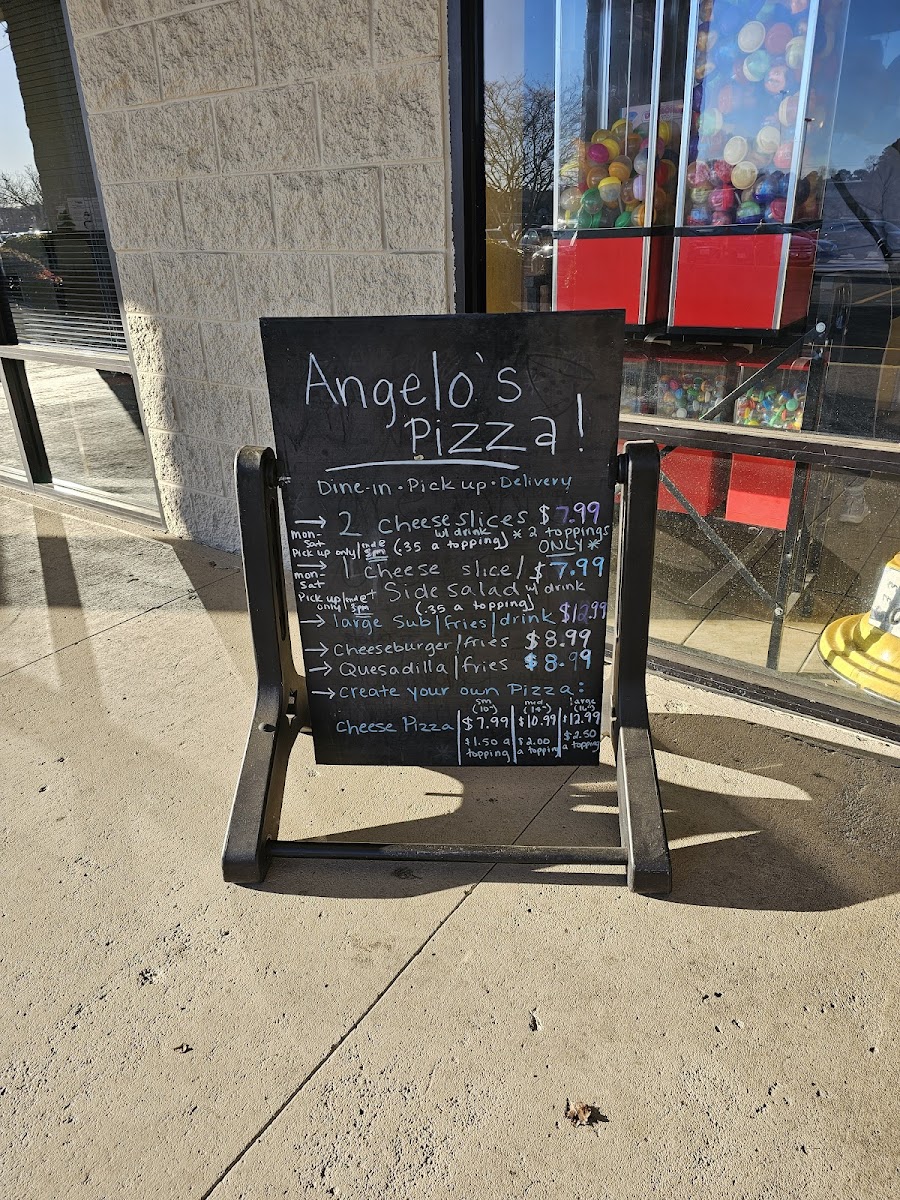 Angelo's
Pizza!
Dine-in · Pick up · Delivery
→ 2 cheese slices $7.99
mon-sat w/ drink * 2 toppings
Pick up only (.35 a topping) ONLY *
→ 1 cheese slice / $7.99
mon-sat + Side Salad w/ drink
Pick up only (.35 a topping)
→ large Sub / fries / drink $12.99
→ Cheeseburger / fries $8.99
→ Quesadilla / fries $8.99
→ create your own Pizza:
sm (10") med (14") large (16")
Cheese Pizza $7.99 $10.99 $12.99
$1.50 a topping $2.00 a topping $2.50 a topping